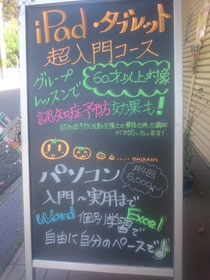 iPad・タブレット
超入門コース
グループ
レッスンで
60才以上対象
認知症予防効果も!
パソコン
月4回
6,000円
入門〜実用まで
Word 個別学習 Excel
自由に自分のペースで